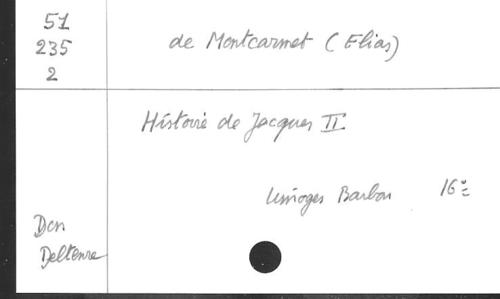 51
235
2
de Montcarmet (Elias)
Histoire de Jacques II
Limoges Barbou 16°
Don
Deltenre